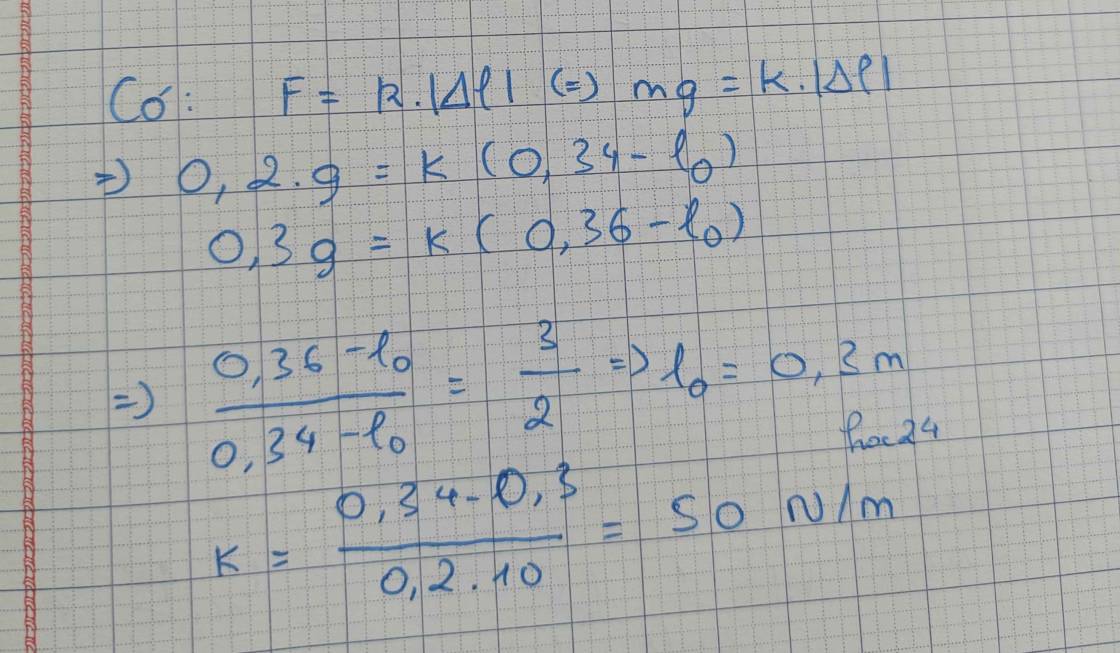 Có: F = k.|Δl| (=) mg = k.|Δl|
=> 0,2.g = k (0,34 - l₀)
0,3g = k (0,36 - l₀)
=> (0,36 - l₀)/(0,34 - l₀) = 3/2 => l₀ = 0,3m
hoc24
k = (0,34 - 0,3)/(0,2.10) = 50 N/m